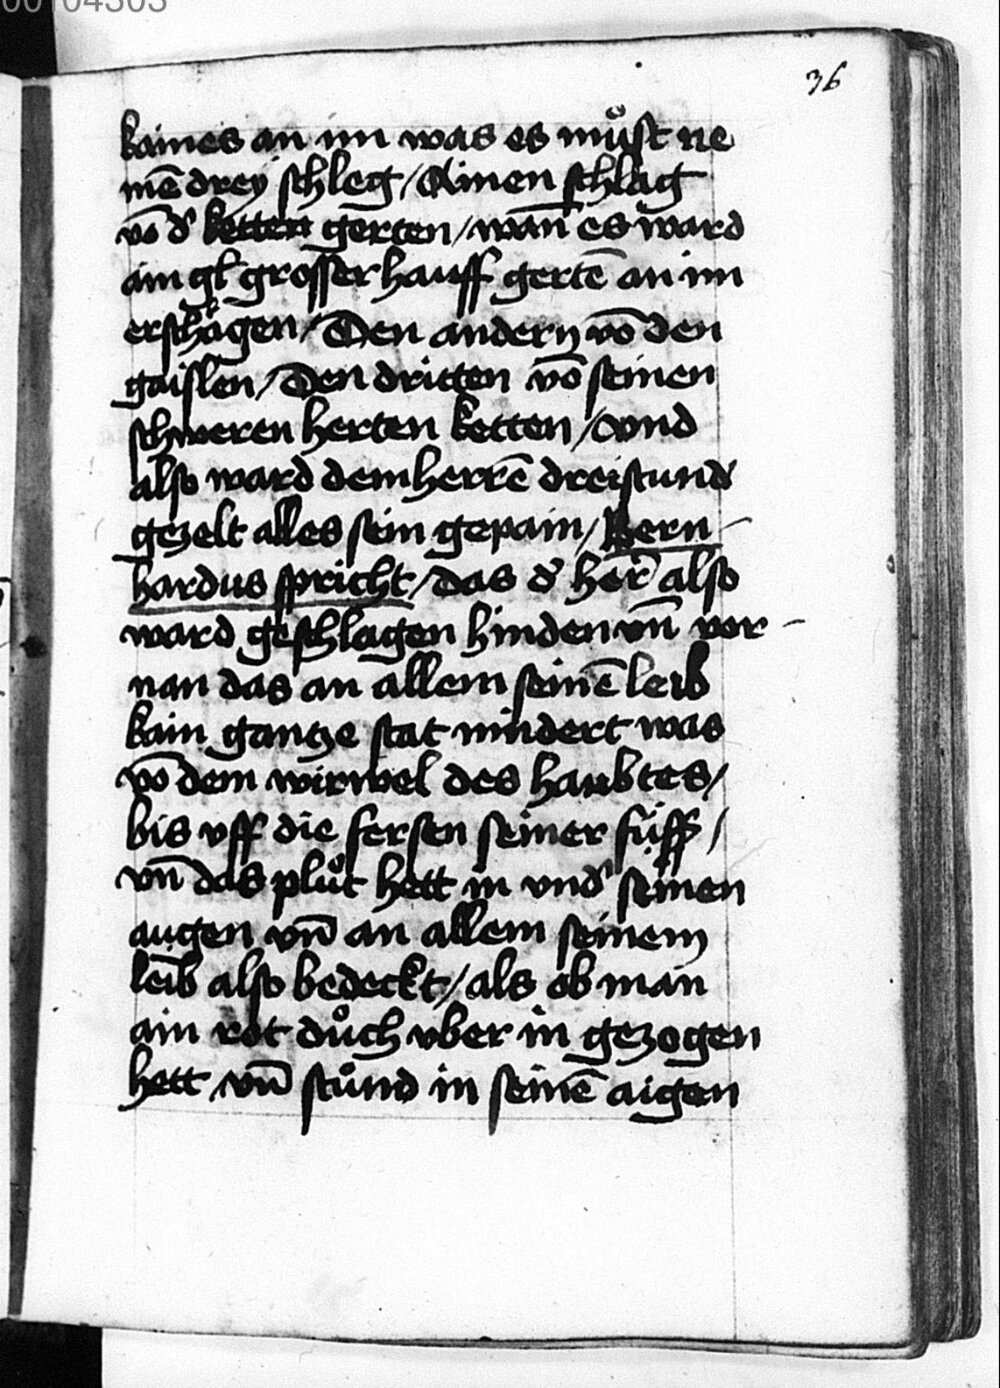 00104303
36
kaines an im was es mu̇st ne
mē drey schleg / Ainen schlag
vō dˢ ketten gerten / wan̄ es ward
ain gl grosser hauff gertē an im
erschlagen / Den andern vō den
gaislen / Den dritten vō seinen
schweren herten ketten / vnd
also ward dem herrē dreistund
gezelt alles sein gepain / Bern
hardus spricht / das dˢ her̄ also
ward geschlagen hinden vn̄ vor
nan das an allem seinē leib
kain gantze stat nindert was
vō dem wirwel des haubtes /
bis vff die fersen seiner füss /
vn̄ das plůt hett in vndˢ seinen
augen vn̄ an allem seinem
leib also bedeckt / als ob man
ain rot důch vber in gezogen
hett vn̄ stůnd in seinē aigen